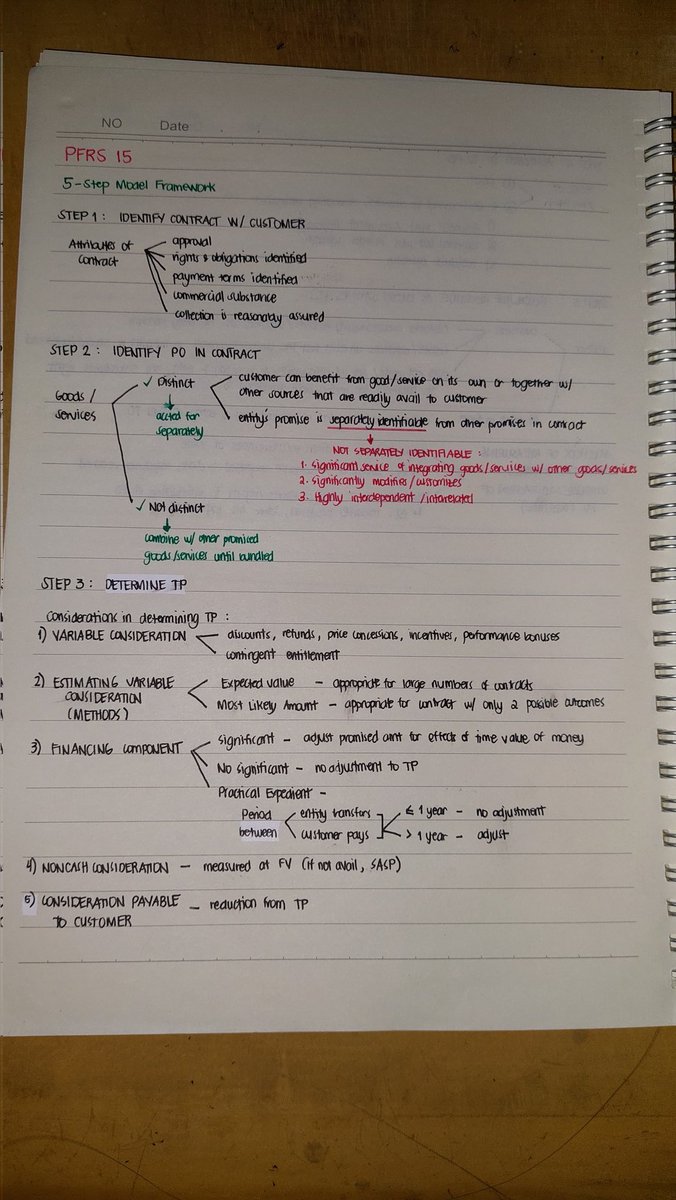 NO Date
PFRS 15
5-Step Model Framework
STEP 1 : IDENTIFY CONTRACT W/ CUSTOMER
Attributes of contract
approval
rights & obligations identified
payment terms identified
commercial substance
collection is reasonably assured
STEP 2 : IDENTIFY PO IN CONTRACT
Goods / services
✓ Distinct
customer can benefit from good/service on its own or together w/
other sources that are readily avail to customer
entity's promise is separately identifiable from other promises in contract
acctd for
separately
NOT SEPARATELY IDENTIFIABLE :
1. significant service of integrating goods/services w/ other goods/services
2. significantly modifies/customizes
3. Highly interdependent /interrelated
✓ Not distinct
combine w/ other promised
goods/services until bundled
STEP 3 : DETERMINE TP
Considerations in determining TP :
1) VARIABLE CONSIDERATION
discounts, refunds, price concessions, incentives, performance bonuses
contingent entitlement
2) ESTIMATING VARIABLE
CONSIDERATION
(METHODS)
Expected value – appropriate for large numbers of contracts
Most Likely Amount – appropriate for contract w/ only 2 possible outcomes
3) FINANCING COMPONENT
significant – adjust promised amt for effects of time value of money
No significant – no adjustment to TP
Practical Expedient –
Period
between
entity transfers
customer pays
≤ 1 year – no adjustment
> 1 year – adjust
4) NONCASH CONSIDERATION – measured at FV (if not avail, SASP)
5) CONSIDERATION PAYABLE – reduction from TP
TO CUSTOMER